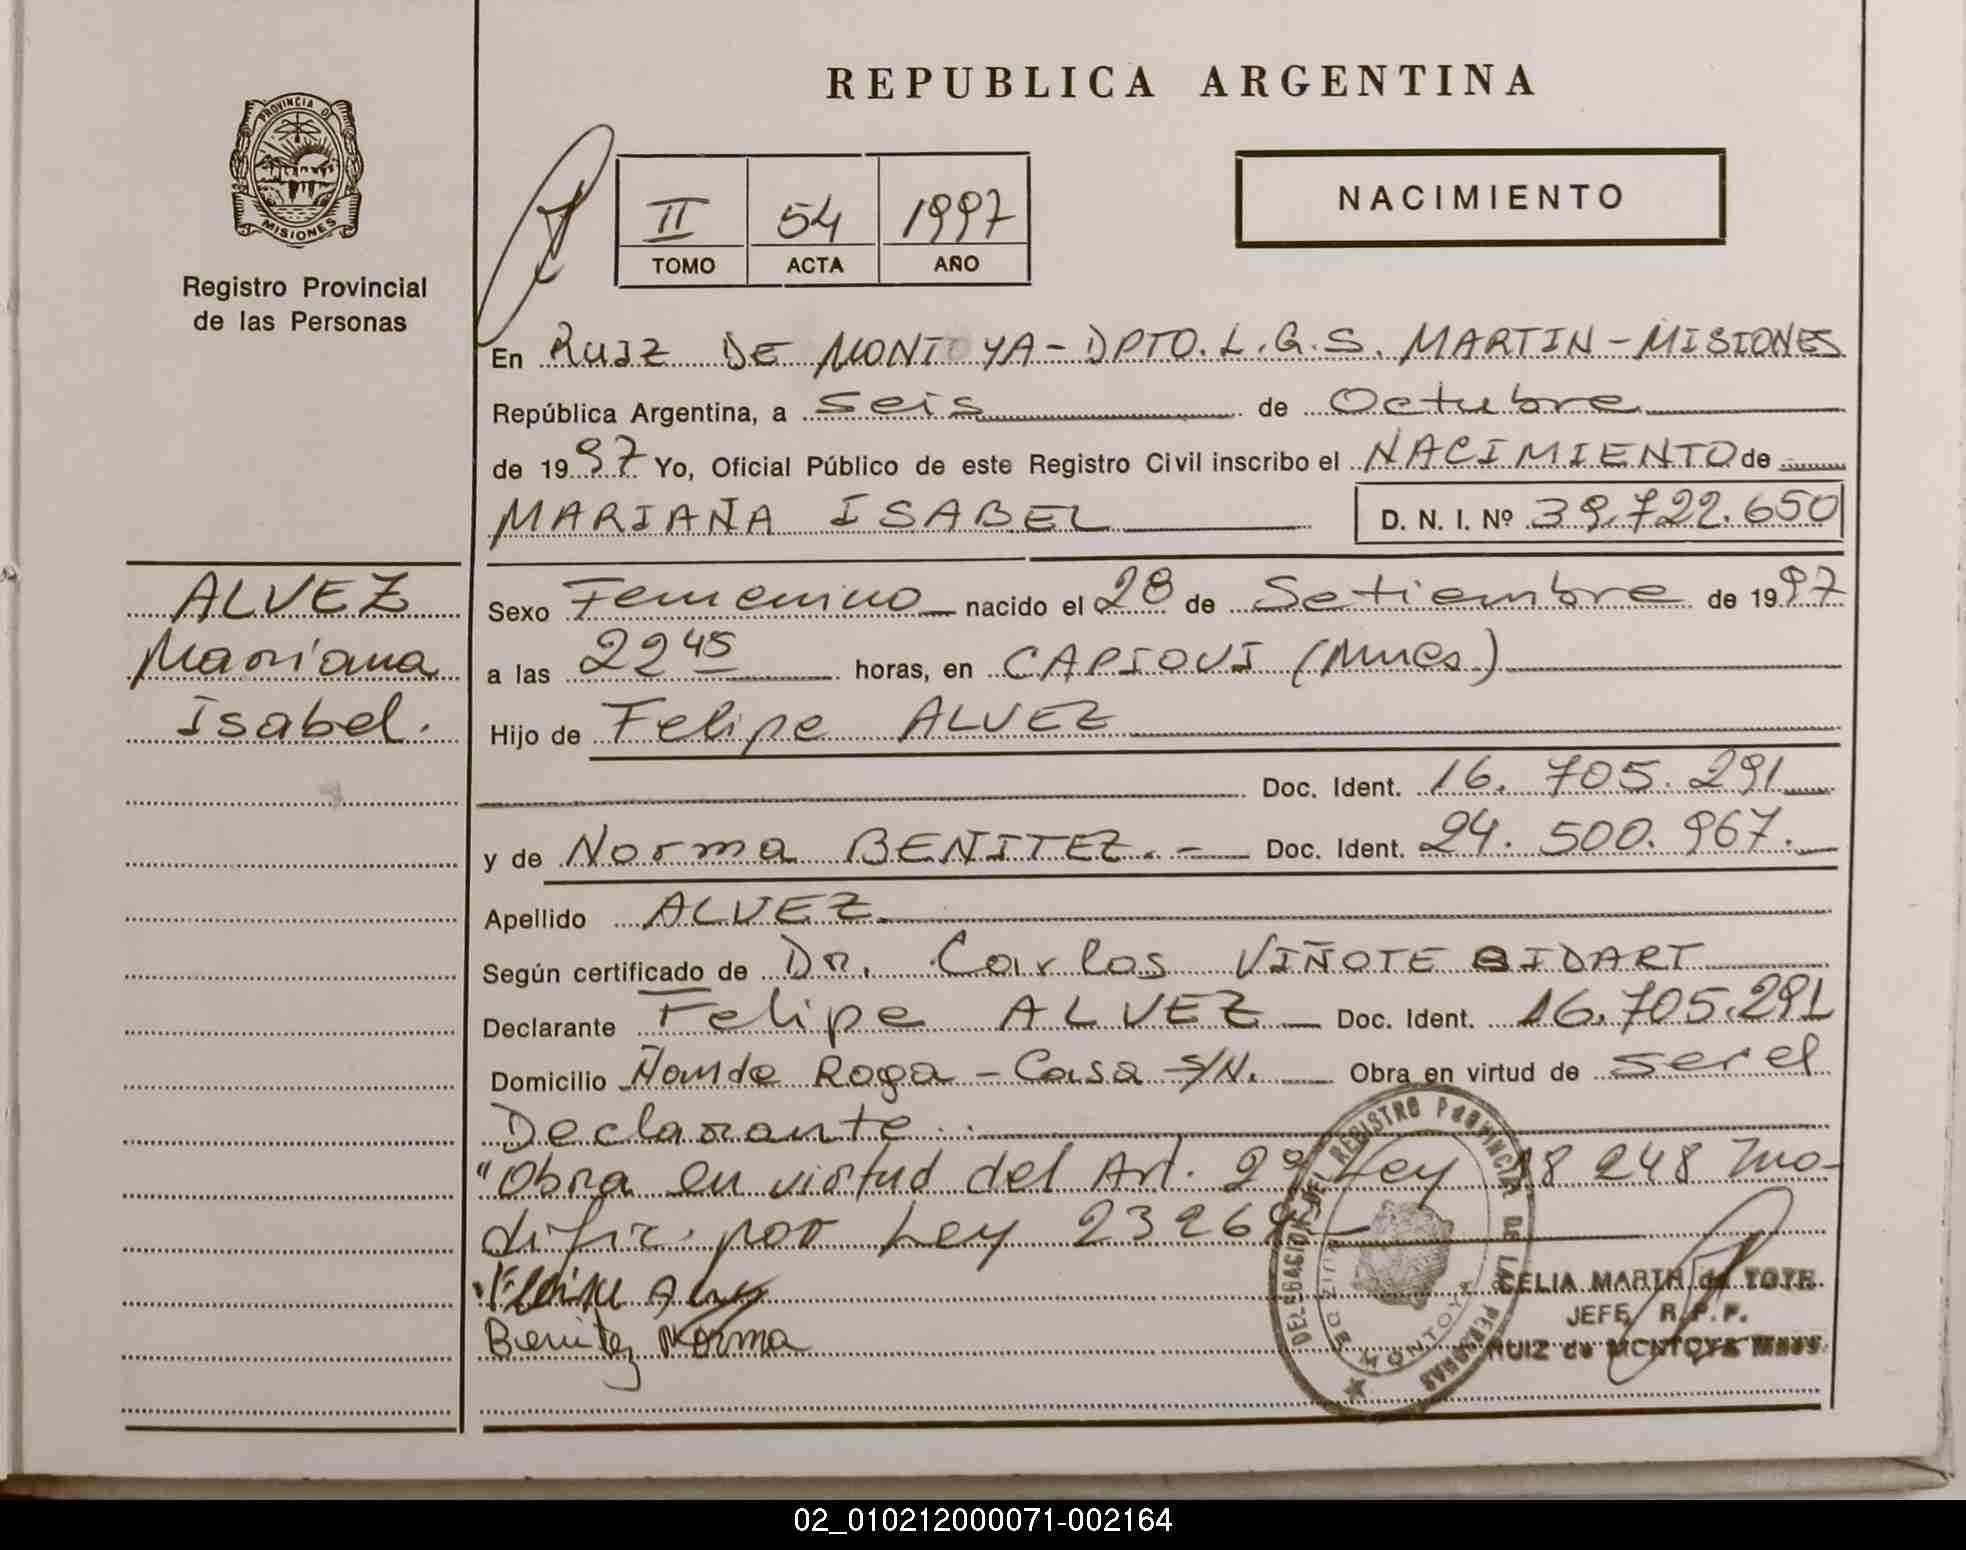 REPUBLICA ARGENTINA
PROVINCIA D
MISIONES
Registro Provincial
de las Personas
II 54 1997
TOMO ACTA AÑO
NACIMIENTO
En RUIZ DE MONTOYA - DPTO. L.G.S. MARTIN - MISIONES
República Argentina, a seis de Octubre
de 1997 Yo, Oficial Público de este Registro Civil inscribo el NACIMIENTO de
MARIANA ISABEL D. N. I. Nº 39.722.650
ALVEZ
Mariana
Isabel.
Sexo Femenino nacido el 28 de Setiembre de 1997
a las 22 45 horas, en CAPIOVI (Mnes)
Hijo de Felipe ALVEZ
Doc. Ident. 16. 705. 291
y de Norma BENITEZ. - Doc. Ident. 24. 500. 967.
Apellido ALVEZ
Según certificado de Dr. Carlos VIÑOTE BIDART
Declarante Felipe ALVEZ Doc. Ident. 16.705.291
Domicilio Ñande Roga - Casa S/N. Obra en virtud de ser el
Declarante.
"Obra en virtud del Art. 2º Ley 18 248 mo-
dific. por Ley 23264
Felipe Alvez
Benitez Norma
DELEGACION DEL REGISTRO PROVINCIAL DE LAS PERSONAS
DE RUIZ MONTOYA
CELIA MARTA de TOTE
JEFE R.P.P.
RUIZ de MONTOYA Mnes.
02_010212000071-002164